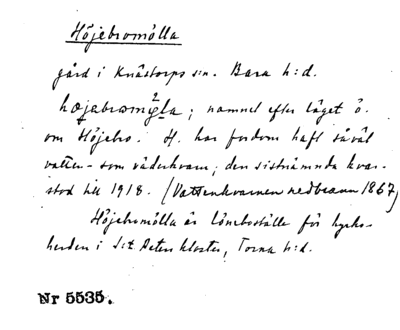 Höjebromölla
gård i Knästorps s:n. Bara h:d.
; namnet efter läget ö.
om Höjebro. H. har fordom haft såväl
vatten- som väderkvarn; den sistnämnda kvar-
stod till 1918. (Vattenkvarnen nedbrann 1867)
Höjebromölla är löneboställe för kyrko-
herden i S:t Peters kloster, Torna h:d.
Nr 5535.